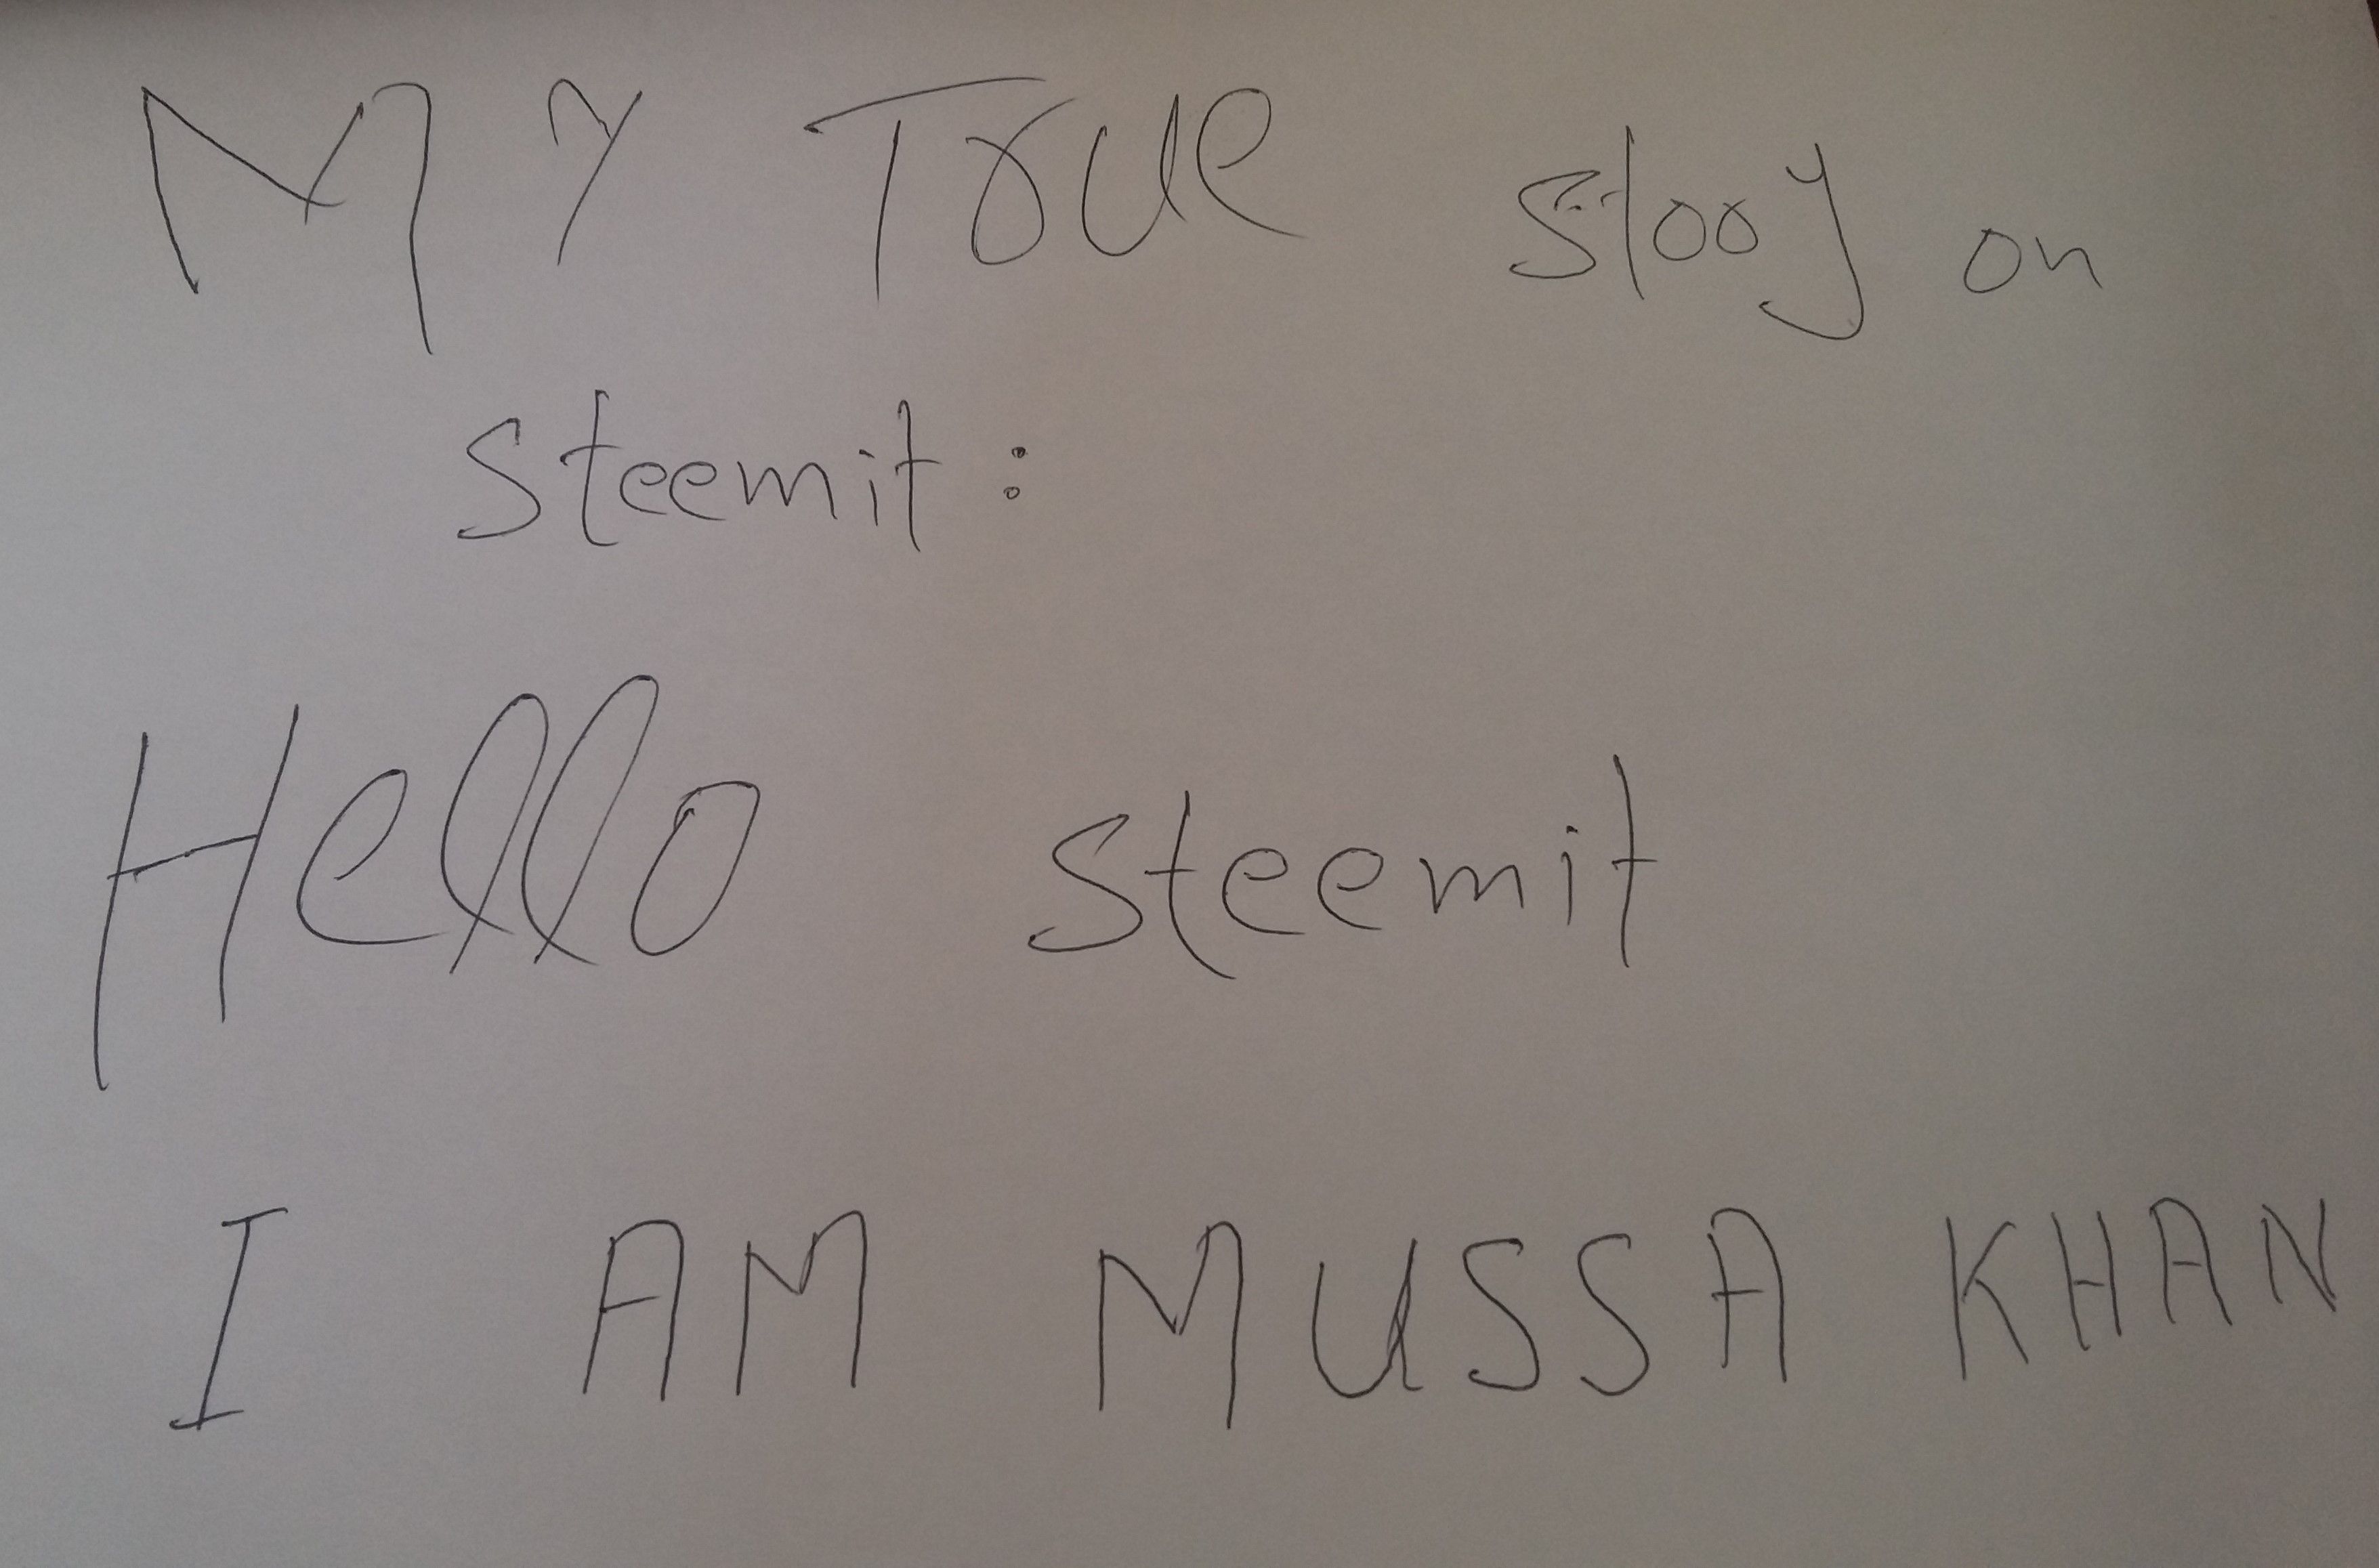 MY True story on
steemit:
Hello steemit
I AM MUSSA KHAN